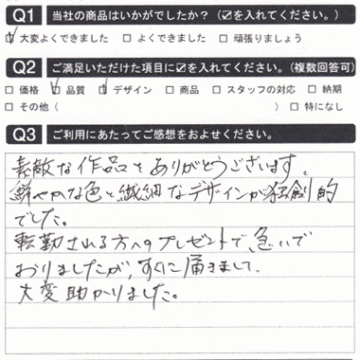 Q1 当社の商品はいかがでしたか？（☑を入れてください。）
☑ 大変よくできました □ よくできました □ 頑張りましょう
Q2 ご満足いただけた項目に☑を入れてください。（複数回答可）
□ 価格 ☑ 品質 ☑ デザイン □ 商品 □ スタッフの対応 □ 納期
□ その他（ ） □ 特になし
Q3 ご利用にあたってご感想をおよせください。
素敵な作品をありがとうございます。
鮮やかな色と繊細なデザインが 的
でした。
転勤される方へのプレゼントで、急いで
おりましたが、すぐに届きまして、
大変助かりました。